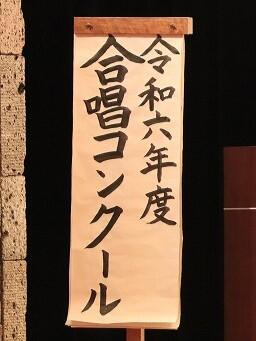 令和六年度
合唱コンクール